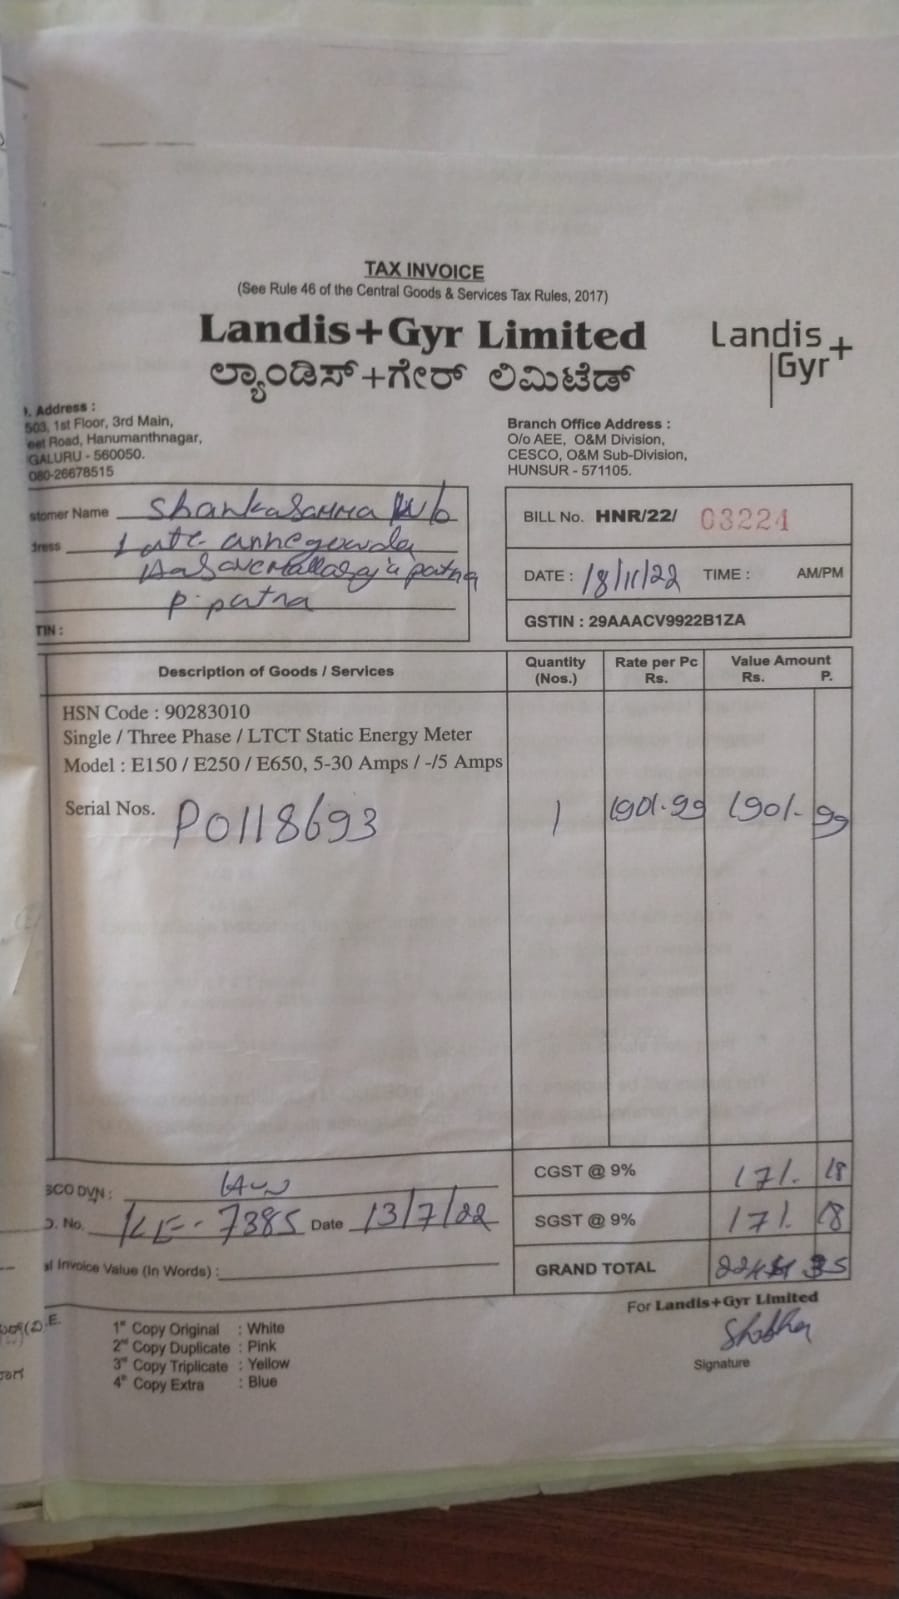 TAX INVOICE
(See Rule 46 of the Central Goods & Services Tax Rules, 2017)
Landis+Gyr Limited
ಲ್ಯಾಂಡಿಸ್+ಗೇರ್ ಲಿಮಿಟೆಡ್
Landis+
Gyr
. Address :
503, 1st Floor, 3rd Main,
eet Road, Hanumanthnagar,
GALURU - 560050.
080-26678515
Branch Office Address :
O/o AEE, O&M Division,
CESCO, O&M Sub-Division,
HUNSUR - 571105.
stomer Name
dress Late annegowda
P. patna
TIN :
BILL No. HNR/22/ 03224
DATE : 18/11/22 TIME : AM/PM
GSTIN : 29AAACV9922B1ZA
Description of Goods / Services Quantity (Nos.) Rate per Pc Rs. Value Amount Rs. P.
HSN Code : 90283010
Single / Three Phase / LTCT Static Energy Meter
Model : E150 / E250 / E650, 5-30 Amps / -/5 Amps
Serial Nos. P0118693 1 1901.99 1901. 99
SCO DVN :
CGST @ 9% 171. 18
O. No. KE-7385 Date 13/7/22
SGST @ 9% 171. 18
al Invoice Value (In Words) :
GRAND TOTAL
For Landis+Gyr Limited
Signature
1st Copy Original : White
2nd Copy Duplicate : Pink
3rd Copy Triplicate : Yellow
4th Copy Extra : Blue